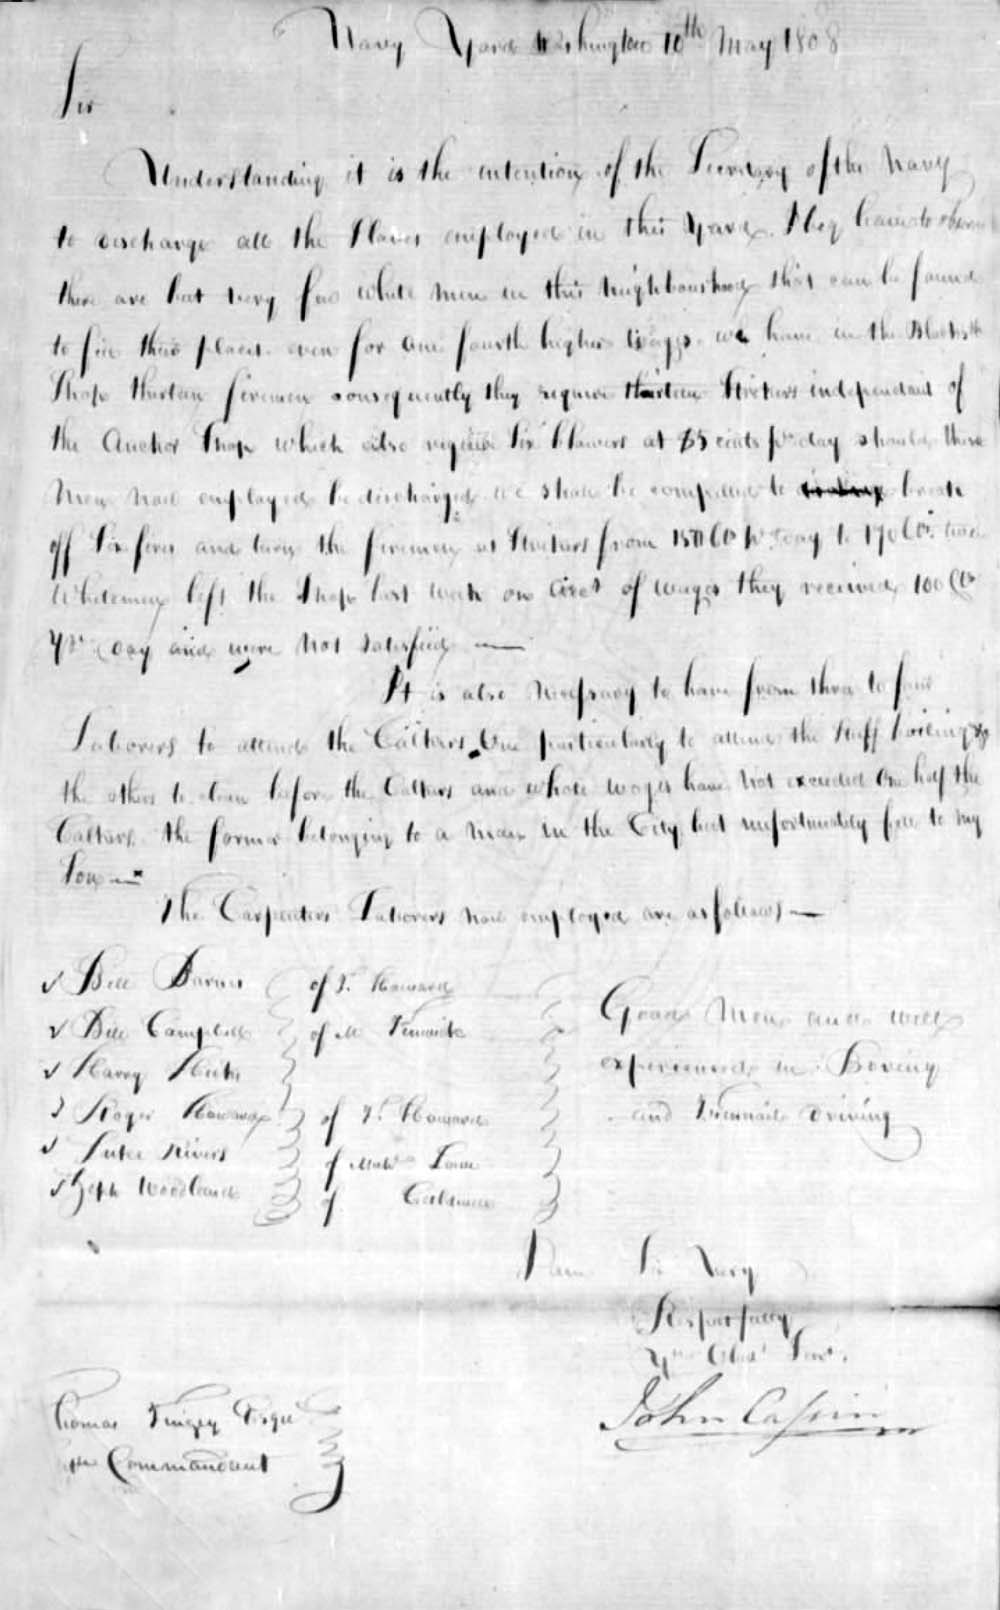 Navy Yard Washington 10th May 1808
Sir
Understanding it is the intention of the Secretary of the Navy
to discharge all the Slaves employed in this Yard. I beg leave to observe
there are but very few white men in this neighbourhood that can be found
to fill their places even for one fourth higher wages. we have in the Blacksth
Shop thirteen firemen consequently they require thirteen Strickers independant of
the Anchor Shop which also require Six Blowers at 85 cents pr day should these
Men now employed be discharged we shall be compelled to break
off Six fires and turn the firemen as Strickers from 150 Cts pr day to 170 Cts. two
Whitemen left the Shop last week on acct of wages they received 100 Cts
pr day and were not satisfied —
It is also necessary to have from three to four
Laborers to attend the Caulkers One particularly to attend the Stuff boiling &
the others to clean before the Calkers and whose wages have not exceeded One half the
Calkers. the former belonging to a man in the City but unfortunately free to my
Son —
The Carpenters Laborers now employed are as follows —
Bill Barnes of T. Howard
Bill Campbell of M Fenwick
Harry Hicks
Roger Howard of T. Howard
Luke Rivers of Lowe
Zeph Woodland of
Good Men and well
experienced in Boring
and Treenail driving
I am Sir Very
Respectfully
Yr Obdt Servt.
John Cassin
Thomas Tingey Esqr
Commandant